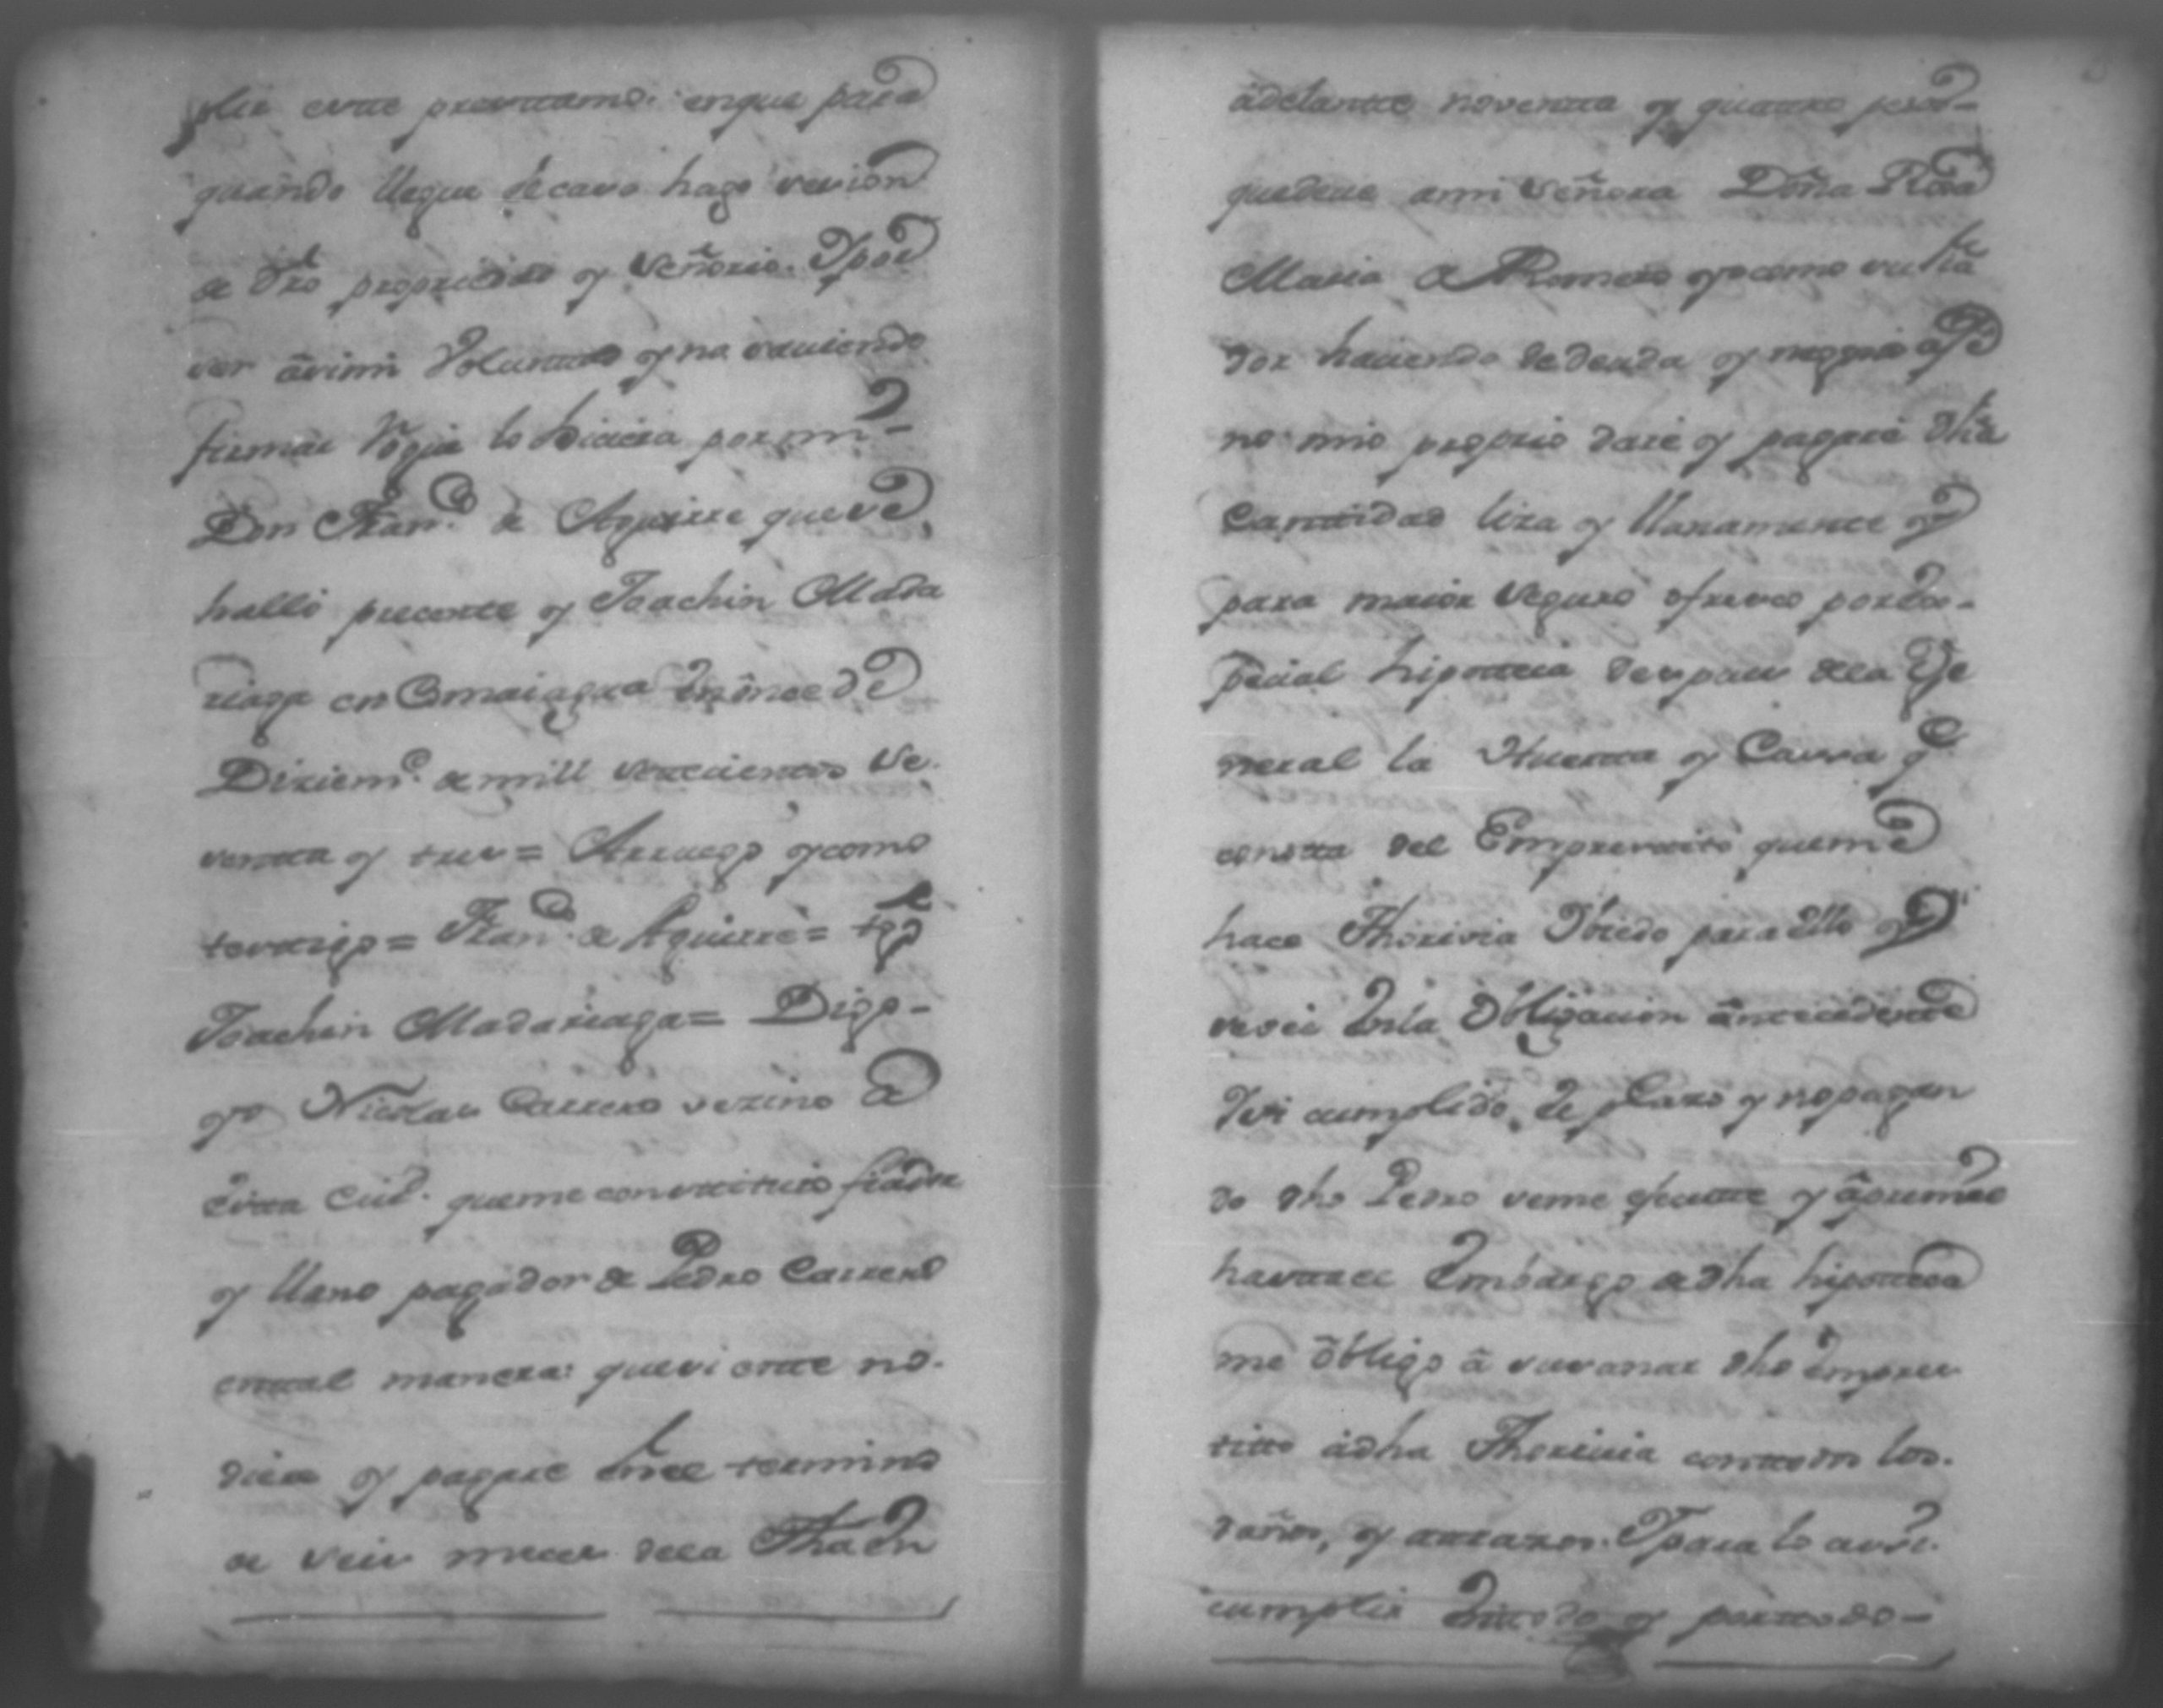 plir este prestamo: enque para
quando llegue el caso hago sesion
de dro propriedad y Señorio. Y por
ser asi mi Voluntad y no saviendo
firmar rogue lo hiciera por mi-
Don Franco. de Aguirre que se
halló precente y Joachin Mada
riaga en Comaiagua en onse de
Diziemе. de mill setecientos se-
senta y tres = Arruego y como
testtigo = Franco. de Aguirre = tgo
Joachin Madariaga = Digo-
yo Nicolas Carrero vezino de
esta Ciud. que me constituio fiador
y llano pagador de Pedro Carrero
en tal manera: que si este no-
diere y pagare en el termino
de seis meces dela fha en
adelantte noventta y quattro pesos-
que deve a mi Señora Doña Rosa
Maria Romero yo como su fia
dor haciendo de deuda y negocio age
no mio proprio dare y pagaré dha
Canttidad liza y llanamente y
para maior seguro ofresco por Es-
pecial hipotteca despues dela Ge
neral la Huertta y Cassa qe
constta del Empresttito que me
hace Thorivia Oviedo para ello y
vesei En la Obligacion antecedente
Y si cumplido el plazo y no pagan
do dho Pedro seme efecutte y apremie
hasttael Embargo de dha hipotteca
me obligo á susanar dho empres
titto a dha Thorivia con todos los-
daños, y attrazos. Y para lo assi-
cumplir En todo y por ttodo-